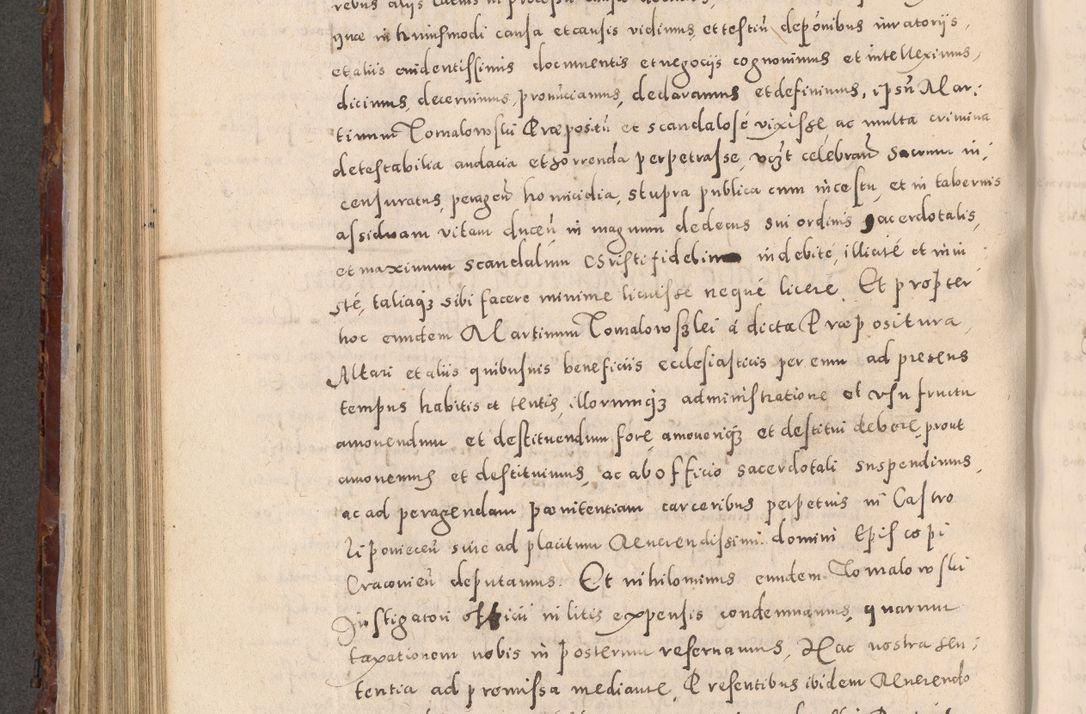 quæ in huiusmodi causa et causis vidimus, et testiũ depõnibus iuratorijs,
et aliis euidentissimis documentis et negocijs cognouimus et intelleximus,
dicimus, decernimus, pronũciamus, declaramus et definimus, ipsũ Mar:
tinum Tomalowski Præpositũ et scandalosé vixisse, ac multa crimina
detestabilia audacia et horrenda perpetrasse, vcʒt celebrañ sacrum in:
censuratus, perageñ homicidia, stupra publica cum incestu, et in tabernis
assiduam vitam duceñ in magnum dedecus sui ordinis sacerdotalis,
et maximum scandalum Christifidelium indebité, illicité et iniu:
sté, taliaqʒ sibi facere minime licuisse neque licere. Et propter
hoc eundem Martinum Tomalowszkei á dicta Præpositura,
Altari et aliis quibusuis beneficiis ecclesiasticis per eum ad presens
tempus habitis et tentis, illorumqʒ administratione et vsu fructu
amouendum et destituendum fore, amouerigʒ et destitui debere, prout
amouemus et destituimus, ac ab officio sacerdotali suspendimus,
ac ad peragendam pænitentiam carceribus perpetuis in Castro
Liponieceñ siue ad placitum Reuerendissimi domini Episcopi
Cracovieñ deputamus. Et nihilominus eundem Tomalowski
Instigatori officii in litis expensis condemnamus, quarum
taxationem nobis in posterum reseruamus, Hac nostra sen:
tentia ad promissa mediante, Presentibus ibidem Reuerendo